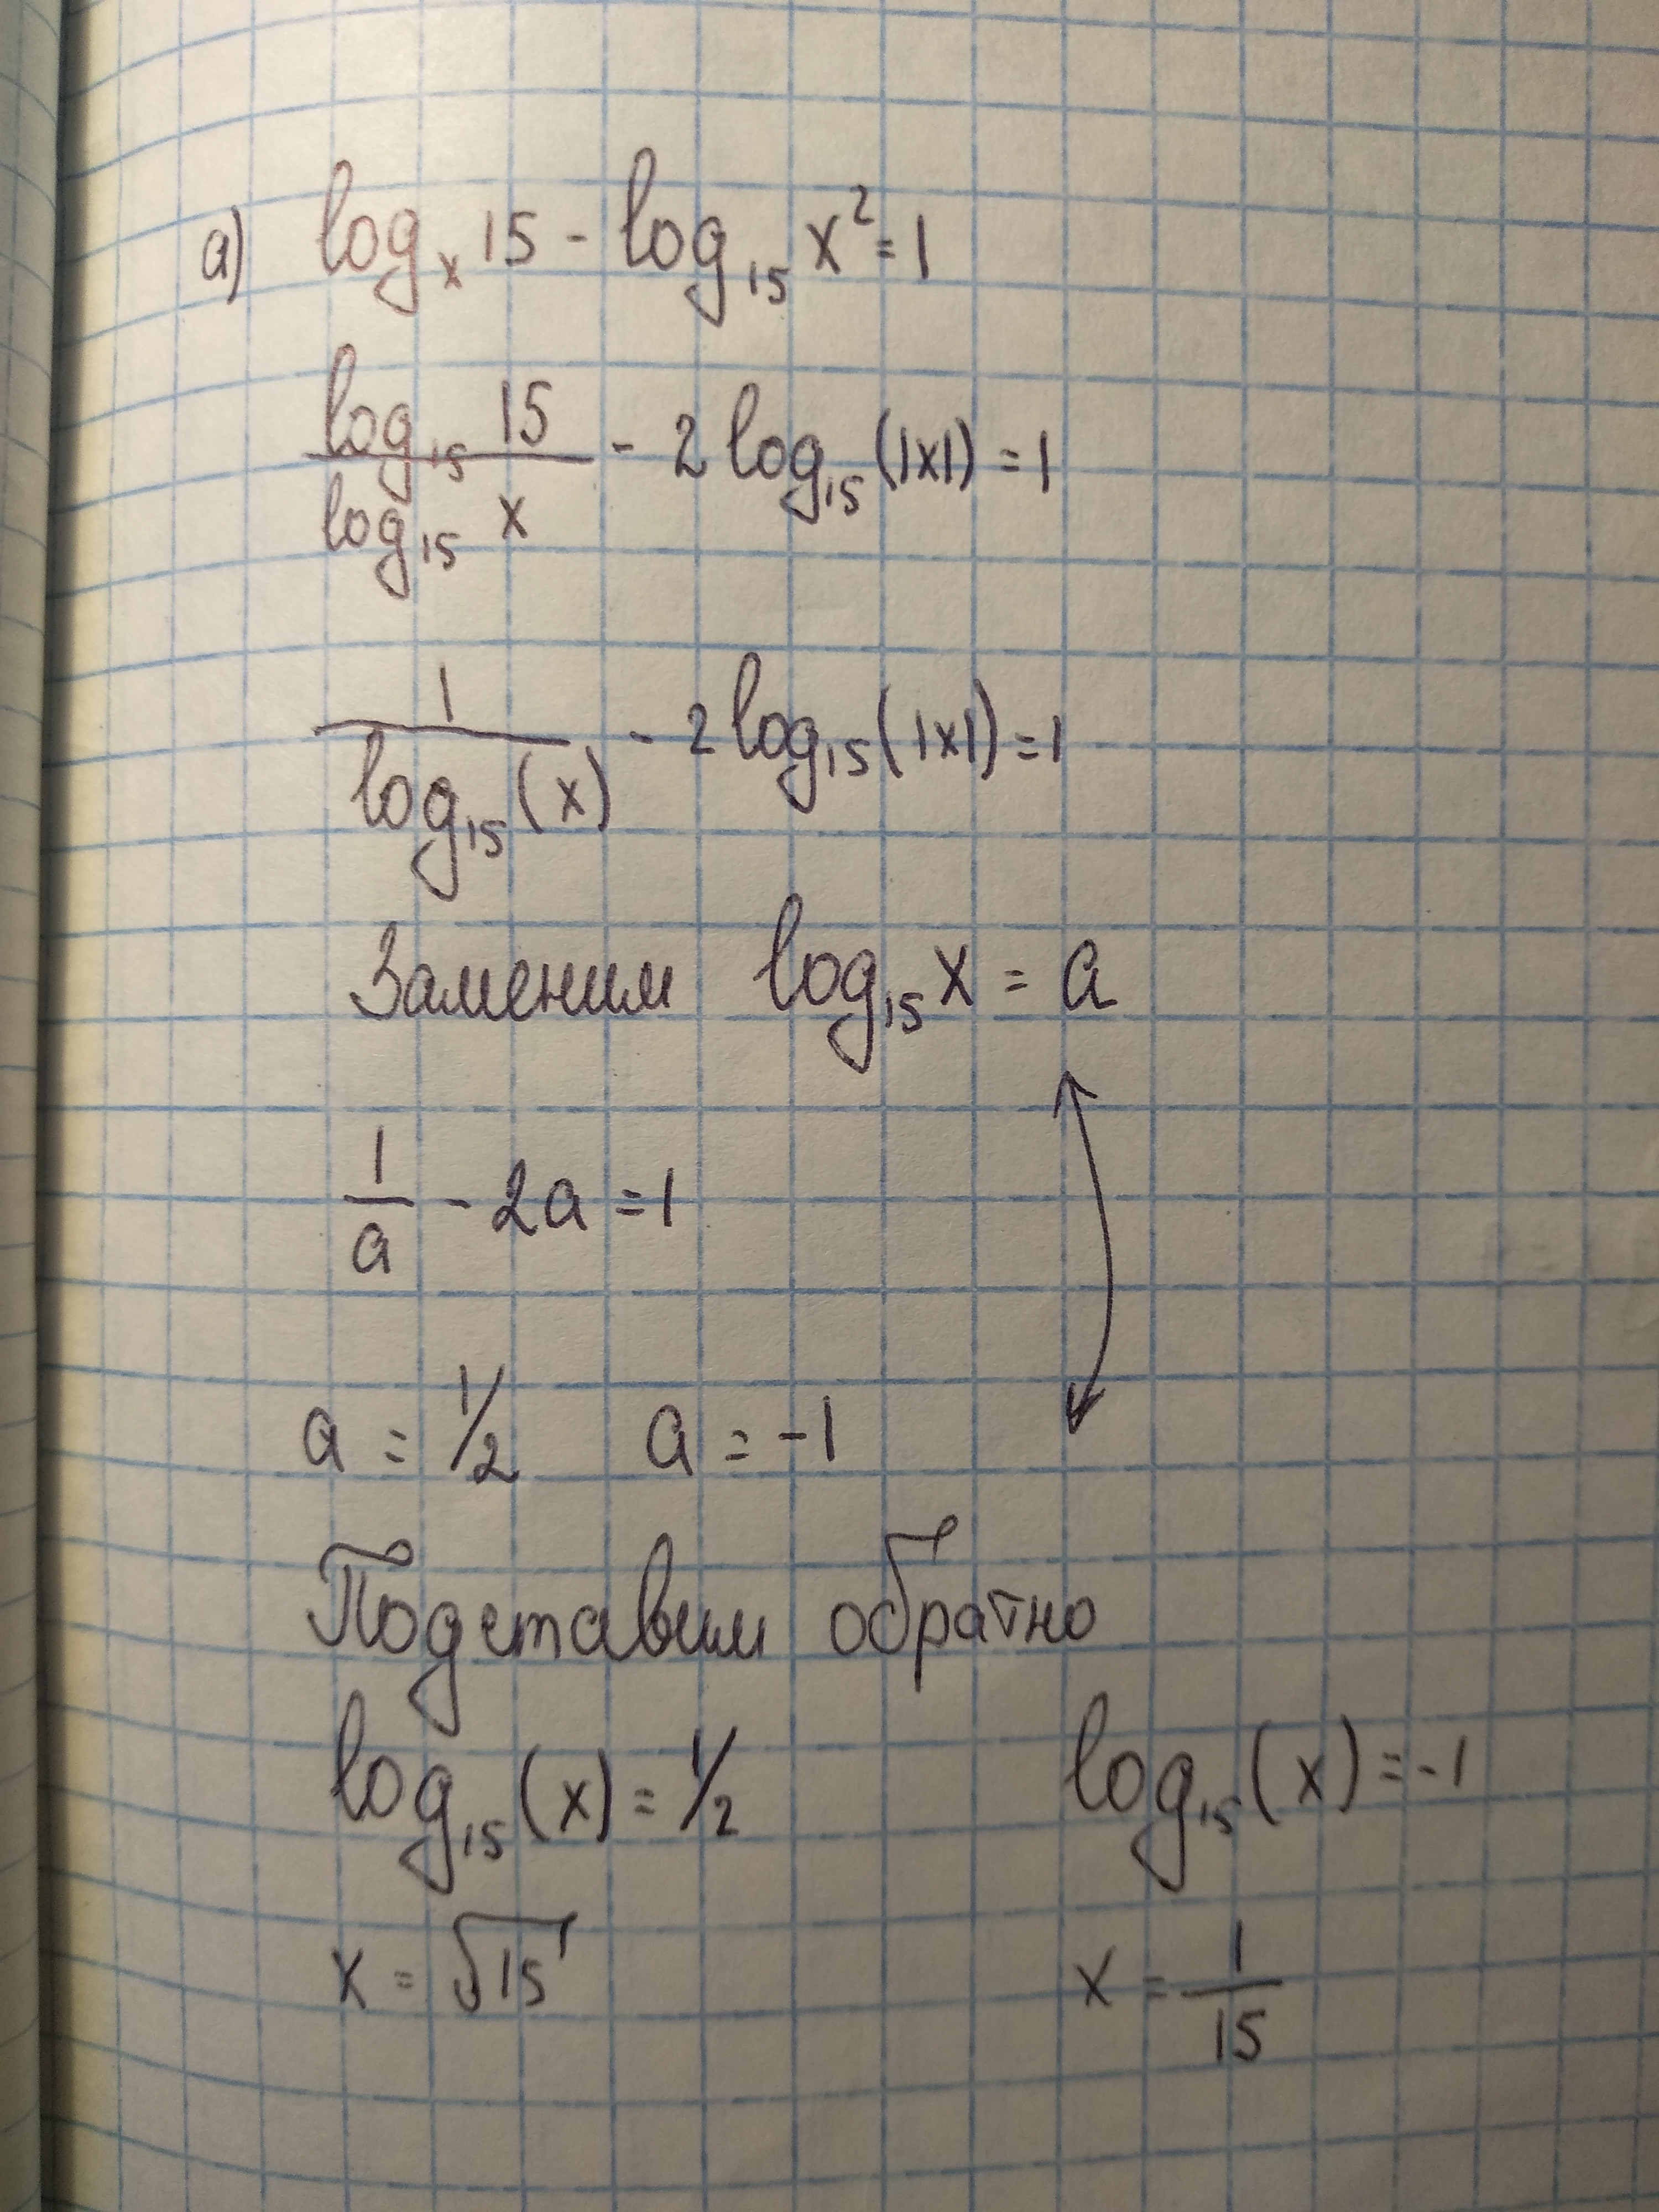 а) logₓ 15 - log₁₅ x² = 1
log₁₅ 15 / log₁₅ x - 2 log₁₅ (|x|) = 1
1 / log₁₅ (x) - 2 log₁₅ (|x|) = 1
Заменим log₁₅ x = a
1/a - 2a = 1
a = 1/2 a = -1
Подставим обратно
log₁₅ (x) = 1/2 log₁₅ (x) = -1
x = √15 x = 1/15